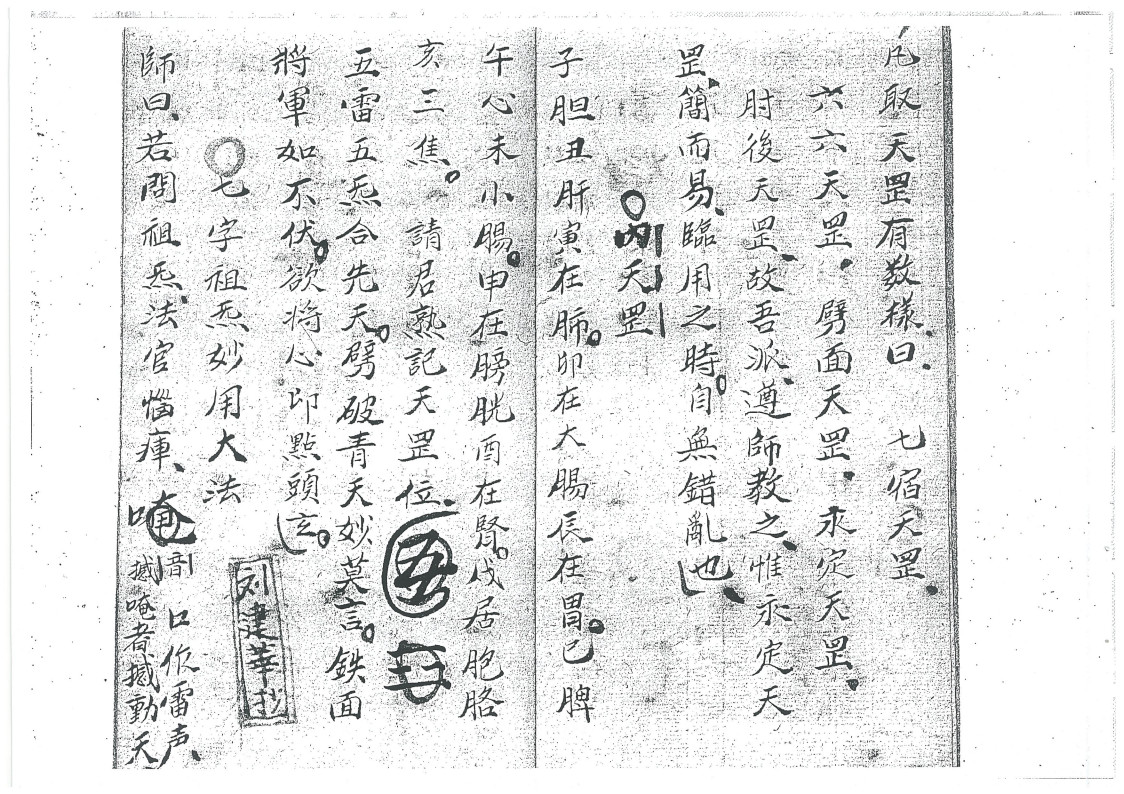 凡取天罡有数樣、曰、七宿天罡、
六六天罡、劈面天罡、永定天罡、
肘後天罡、故吾派遵師教之、惟永定天
罡、簡而易、臨用之時。自無錯亂也、
天罡
子胆丑肝寅在肺。卯在大腸辰在胃。巳脾
午心未小腸。申在膀胱酉在腎。戌居胞胳
亥三焦。請君熟記天罡位。
五雷五炁合先天。劈破青天妙莫言。鉄面
將軍如不伏。欲将心印點頭玄。
七字祖炁妙用大法
刘建華抄
師曰、若問祖炁、法官惱庫、唵音口作雷声、
撼唵者撼動天